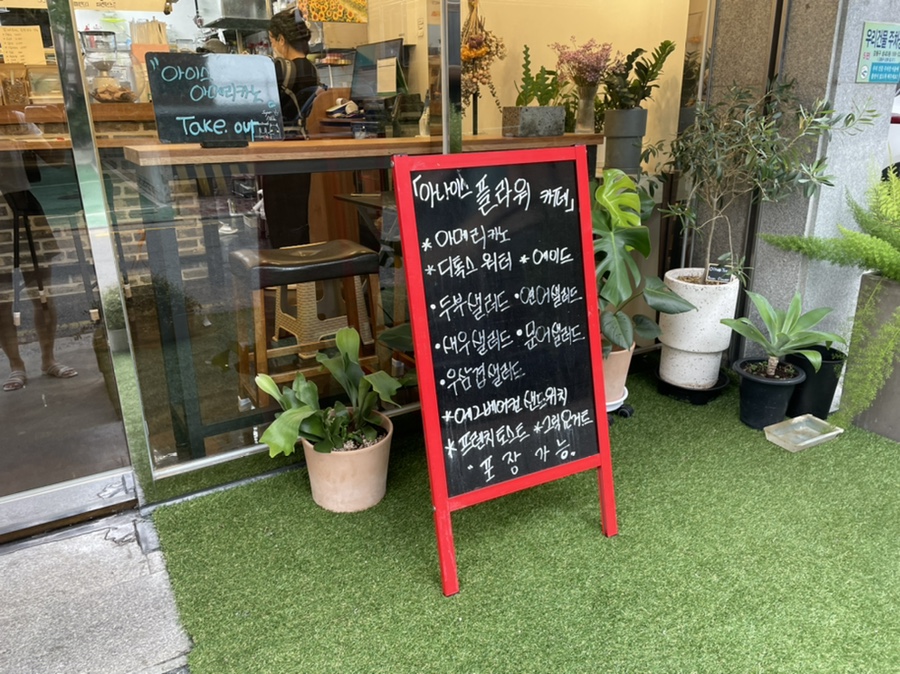 "아이스
아메리카노
Take. out
「아나이스 플라워 카페」
* 아메리카노
* 디톡스 워터 * 에이드
· 두부샐러드 · 연어샐러드
· 새우샐러드 · 문어샐러드
· 우삼겹샐러드
* 에그베이컨 샌드위치
* 프렌치토스트 * 그릭요거트
" 포 장 가 능 "
우리건물 주차